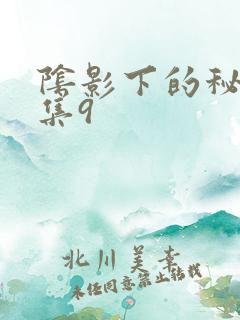 陰影下的秘
集9
北川美幸
未经同意禁止转载